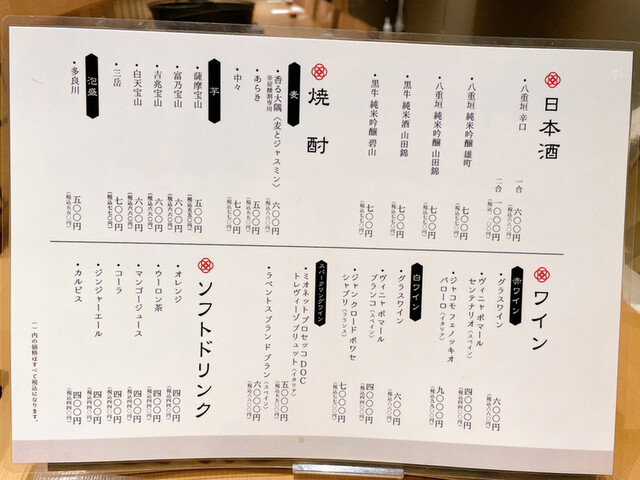 日本酒
・八重垣 辛口
一合 六〇〇円
(税込六六〇円)
二合 一〇〇〇円
・八重垣 純米吟醸 雄町
七〇〇円
(税込七七〇円)
・八重垣 純米吟醸 山田錦
七〇〇円
(税込七七〇円)
・黒牛 純米酒 山田錦
七〇〇円
(税込七七〇円)
・黒牛 純米吟醸 碧山
七〇〇円
(税込七七〇円)
焼酎
麦
・香る大隅〈麦とジャスミン〉
※炭酸割専用
六〇〇円
(税込六六〇円)
・あらき
五〇〇円
(税込五五〇円)
・中々
七〇〇円
(税込七七〇円)
芋
・薩摩宝山
五〇〇円
(税込五五〇円)
・富乃宝山
六〇〇円
(税込六六〇円)
・吉兆宝山
六〇〇円
(税込六六〇円)
・白天宝山
六〇〇円
(税込六六〇円)
・三岳
七〇〇円
(税込七七〇円)
泡盛
・多良川
五〇〇円
(税込五五〇円)
ワイン
赤ワイン
・グラスワイン
六〇〇円
(税込六六〇円)
・ヴィニャ ポマール
センテナリオ〈スペイン〉
四〇〇〇円
・ジャコモ フェノッキオ
バローロ〈イタリア〉
九〇〇〇円
白ワイン
・グラスワイン
六〇〇円
(税込六六〇円)
・ヴィニャ ポマール
ブランコ〈スペイン〉
四〇〇〇円
・ジャン クロード ボワセ
シャブリ〈フランス〉
七〇〇〇円
スパークリングワイン
・ミオネット プロセッコ DOC
トレヴィーゾ ブリュット〈イタリア〉
五〇〇〇円
・ラベントス ブランド ブラン〈スペイン〉
六〇〇〇円
ソフトドリンク
・オレンジ
四〇〇円
(税込四四〇円)
・ウーロン茶
四〇〇円
(税込四四〇円)
・マンゴージュース
四〇〇円
(税込四四〇円)
・コーラ
四〇〇円
(税込四四〇円)
・ジンジャーエール
四〇〇円
(税込四四〇円)
・カルピス
四〇〇円
(税込四四〇円)
( )内の価格はすべて税込になります。